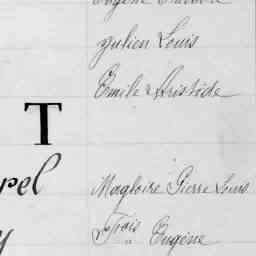 Eugène
Julien Louis
Emile Aristide
T
rel
Magloire Pierre Louis
Frois Eugène
y